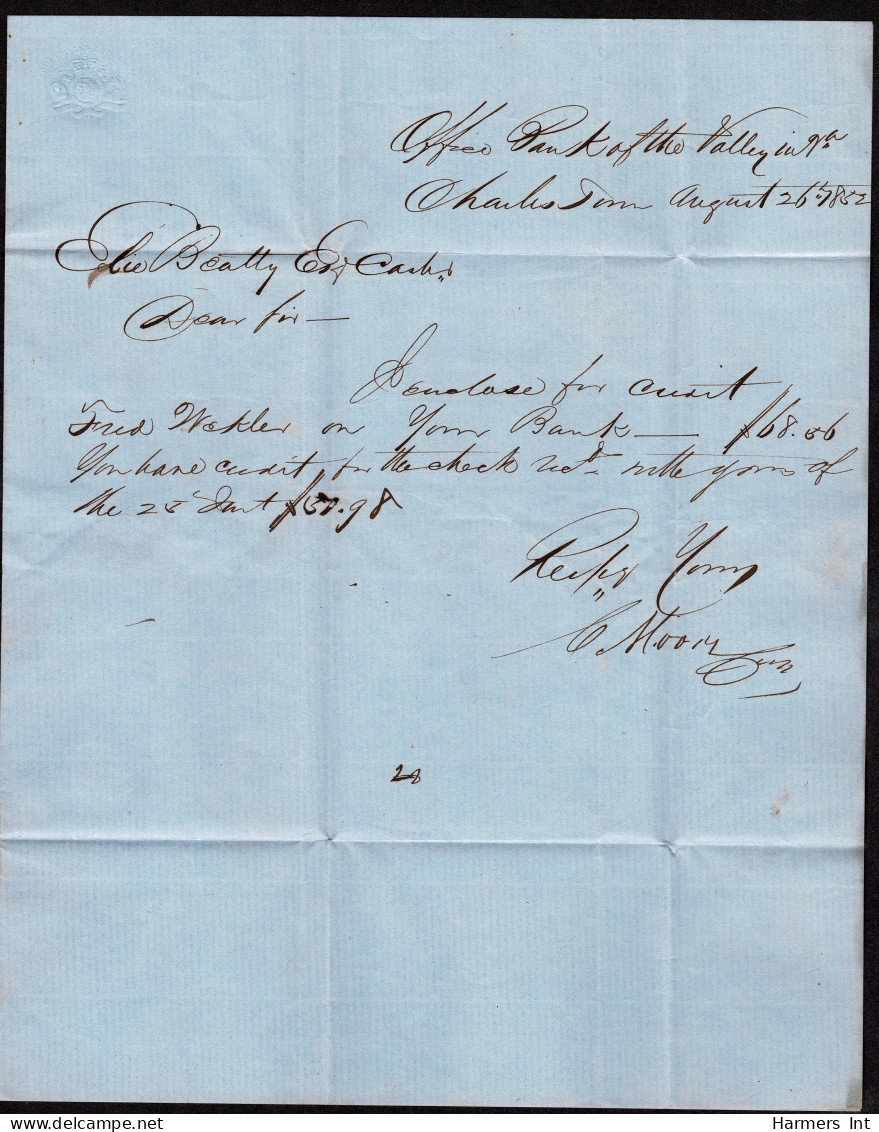 Office Bank of the Valley in Va
Charles Town August 26th 1852
Elie Beatty Esq Cashr
Dear Sir —
I enclose for credit
Fred Wekler on Your Bank — $68.56
You have credit for the check recd. with yours of
the 25 Inst $50.98
Respy Yours
C Moore Cash
28
Harmers Int